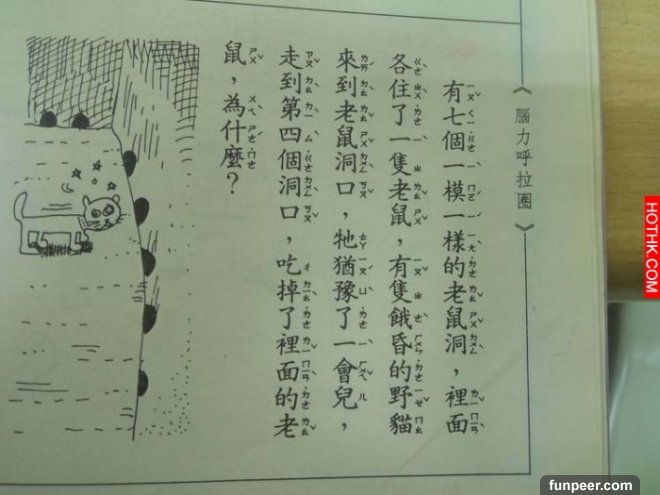 《腦力呼拉圈》
有七個一模一樣的老鼠洞，裡面
各住了一隻老鼠，有隻餓昏的野貓
來到老鼠洞口，牠猶豫了一會兒，
走到第四個洞口，吃掉了裡面的老
鼠，為什麼？
HOTHK.COM
funpeer.com